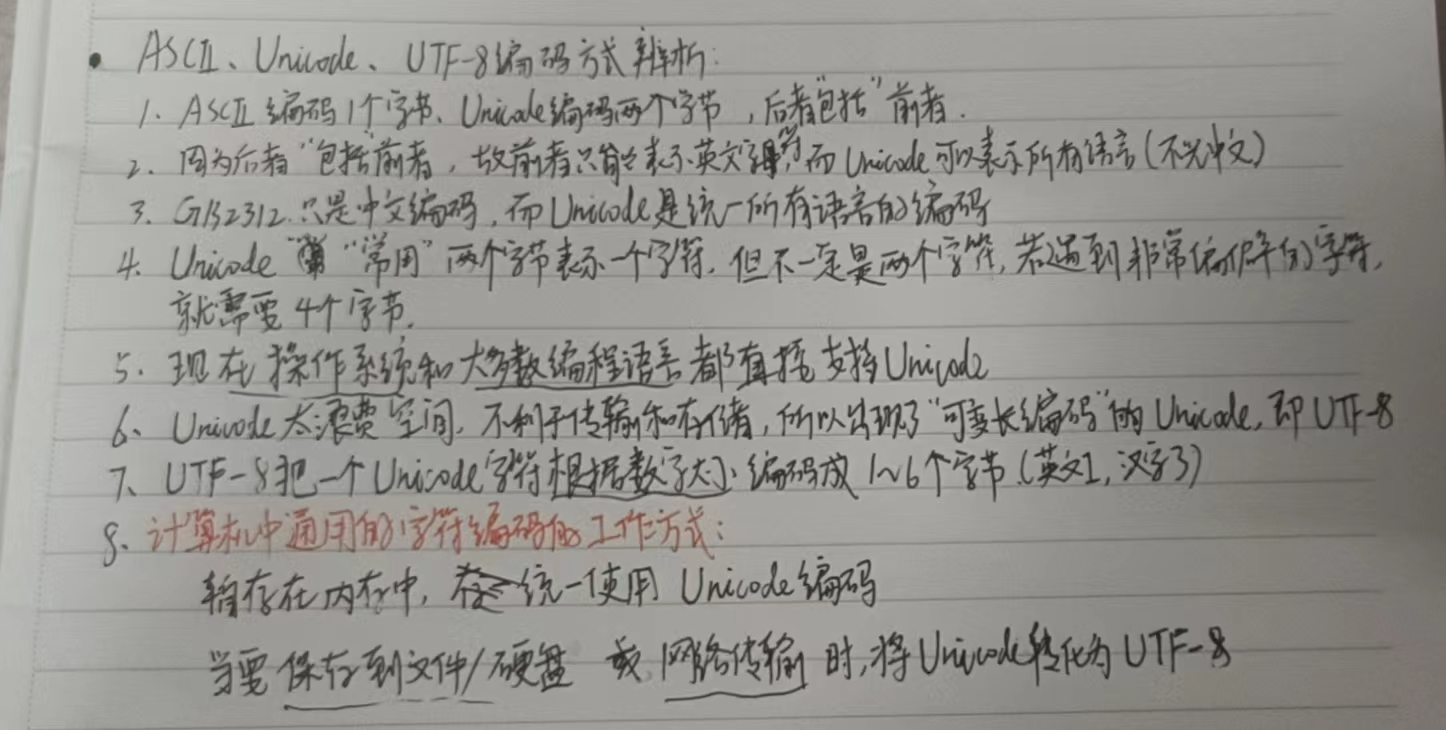 • ASCII、Unicode、UTF-8编码方式辨析:
1. ASCII编码1个字节、Unicode编码两个字节,后者"包括"前者.
2. 因为后者"包括"前者,故前者只能表示英文字符,而Unicode可以表示所有语言(不光中文)
3. GB2312.只是中文编码,而Unicode是统一所有语言的编码
4. Unicode "常用"两个字节表示一个字符,但不一定是两个字符,若遇到非常偏僻的字符,
就需要4个字节.
5. 现在操作系统和大多数编程语言都直接支持Unicode
6、Unicode太浪费空间,不利于传输和存储,所以出现了"可变长编码"的Unicode,即UTF-8
7、UTF-8把一个Unicode字符根据数字大小编码成1~6个字节.(英文1,汉字3)
8、计算机中通用的字符编码的工作方式:
暂存在内存中,统一使用Unicode编码
当要保存到文件/硬盘 或 网络传输时,将Unicode转化为UTF-8